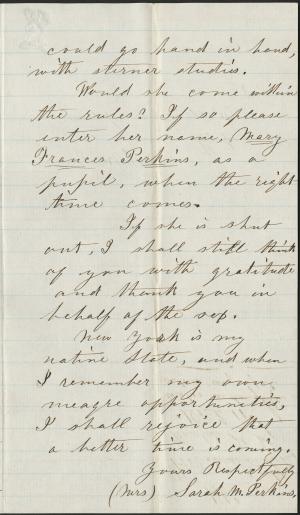 could go hand in hand,
with sterner studies.
Would she come within
the rules? If so please
enter her name, Mary
Frances Perkins, as a
pupil, when the right
time comes.
If she is shut
out, I shall still think
of you with gratitude
and thank you in
behalf of the sex.
New York is my
native state, and when
I remember my own
meagre opportunities,
I shall rejoice that
a better time is coming.
Yours Respectfully
(Mrs) Sarah M. Perkins.